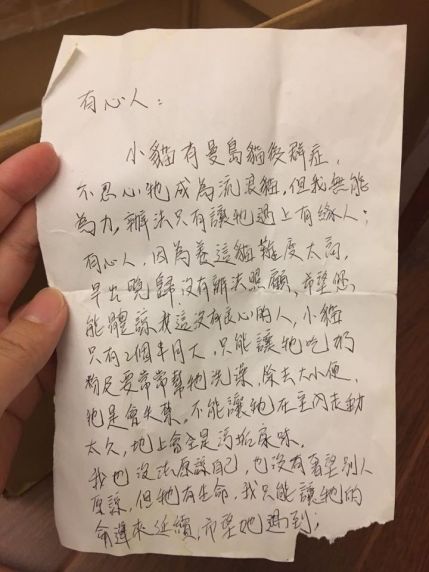 有心人：
小貓有曼島貓後群症，
不忍心牠成為流浪貓，但我無能
為力，辦法只有讓牠遇上有緣人；
有心人，因為養這貓難度太高，
早出晚歸，沒有辦法照顧，希望您，
能體諒我這沒有良心的人，小貓
只有2個半月大，只能讓牠吃奶
粉及要常常幫牠洗澡，除去大小便，
牠是會失禁，不能讓牠在室內走動
太久，地上會全是污垢床味。
我也沒法原諒自己，也沒有奢望別人
原諒，但牠有生命，我只能讓牠的
命運來延續，希望她遇到；